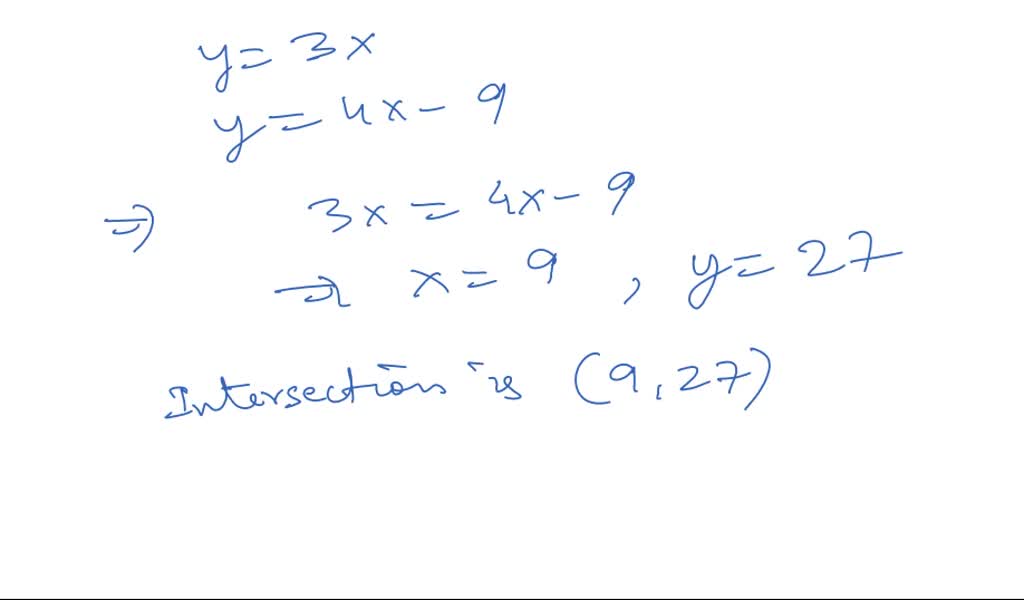 y = 3x
y = 4x - 9
⇒ 3x = 4x - 9
⇒ x = 9 , y = 27
Intersection is (9, 27)